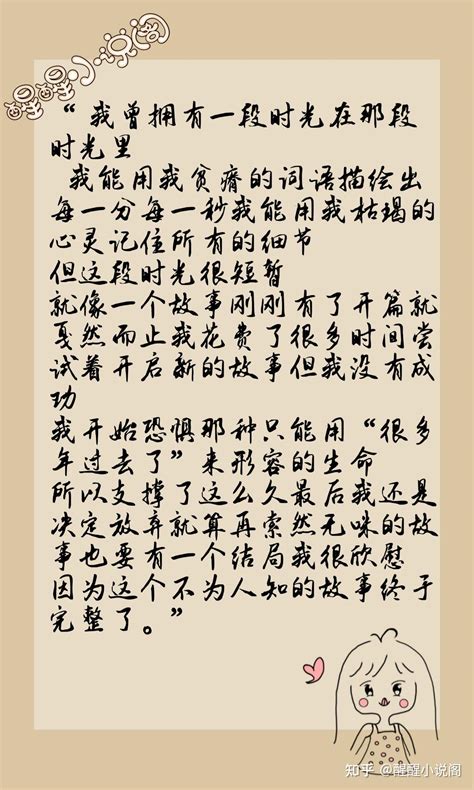 醒醒小说阁
“我曾拥有一段时光在那段
时光里
我能用我贫瘠的词语描绘出
每一分每一秒我能用我枯竭的
心灵记住所有的细节
但这段时光很短暂
就像一个故事刚刚有了开篇就
戛然而止我花费了很多时间尝
试着开启新的故事但我没有成
功
我开始恐惧那种只能用“很多
年过去了”来形容的生命
所以支撑了这么久最后我还是
决定放弃就算再索然无味的故
事也要有一个结局我很欣慰
因为这个不为人知的故事终于
完整了。”
知乎 @醒醒小说阁